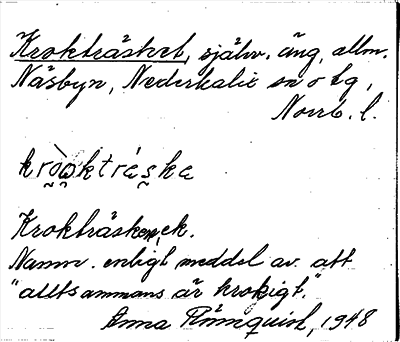 Krokträsket, självv. äng, allm.
Näsbyn, Nederkalix sn o tg,
Norrb. l.
kròktráska
Krokträsken, ek.
Namn. enligt meddel av. att
"alltsammans är krokigt."
Anna Rönnquist, 1948